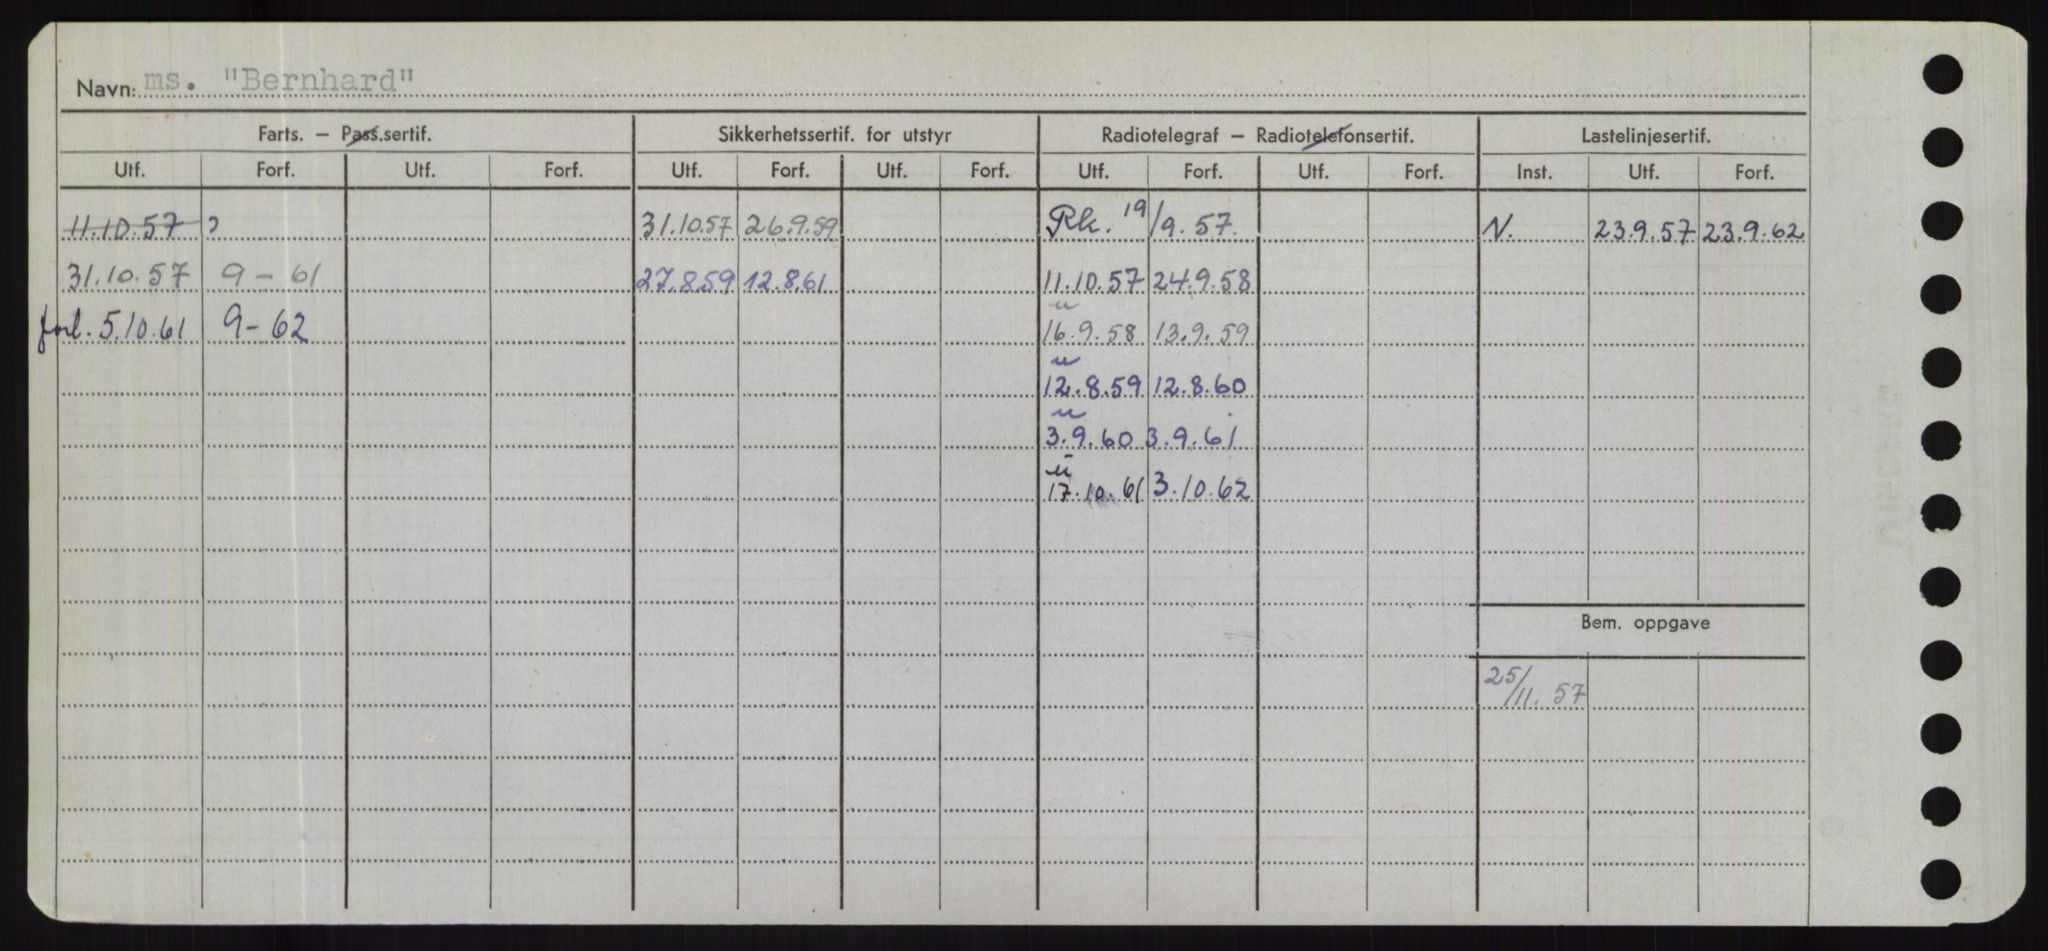 Navn: ms. "Bernhard"
Farts. – Pass.sertif. Sikkerhetssertif. for utstyr Radiotelegraf – Radiotelefonsertif. Lastelinjesertif.
Utf. Forf. Utf. Forf. Utf. Forf. Utf. Forf. Utf. Forf. Utf. Forf. Inst. Utf. Forf.
11.10.57 31.10.57 26.9.59 Rk. 19/9.57. N. 23.9.57 23.9.62
31.10.57 9 – 61 27.8.59 12.8.61 11.10.57 24.9.58
forl. 5.10.61 9 – 62 16.9.58 13.9.59
12.8.59 12.8.60
3.9.60 3.9.61
17.10.61 3.10.62
Bem. oppgave
25/11.57